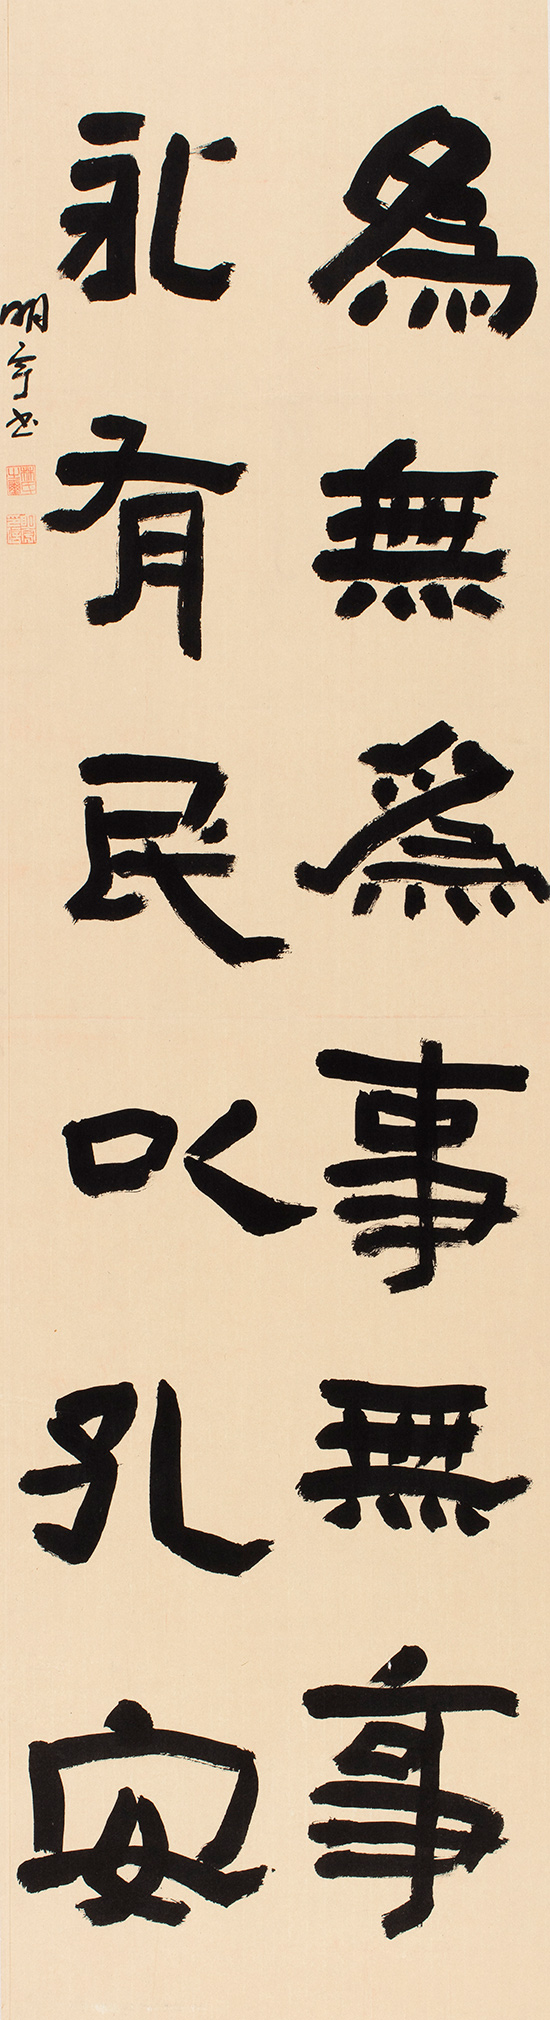 為無為事無事
永有民以孔安
明亨书